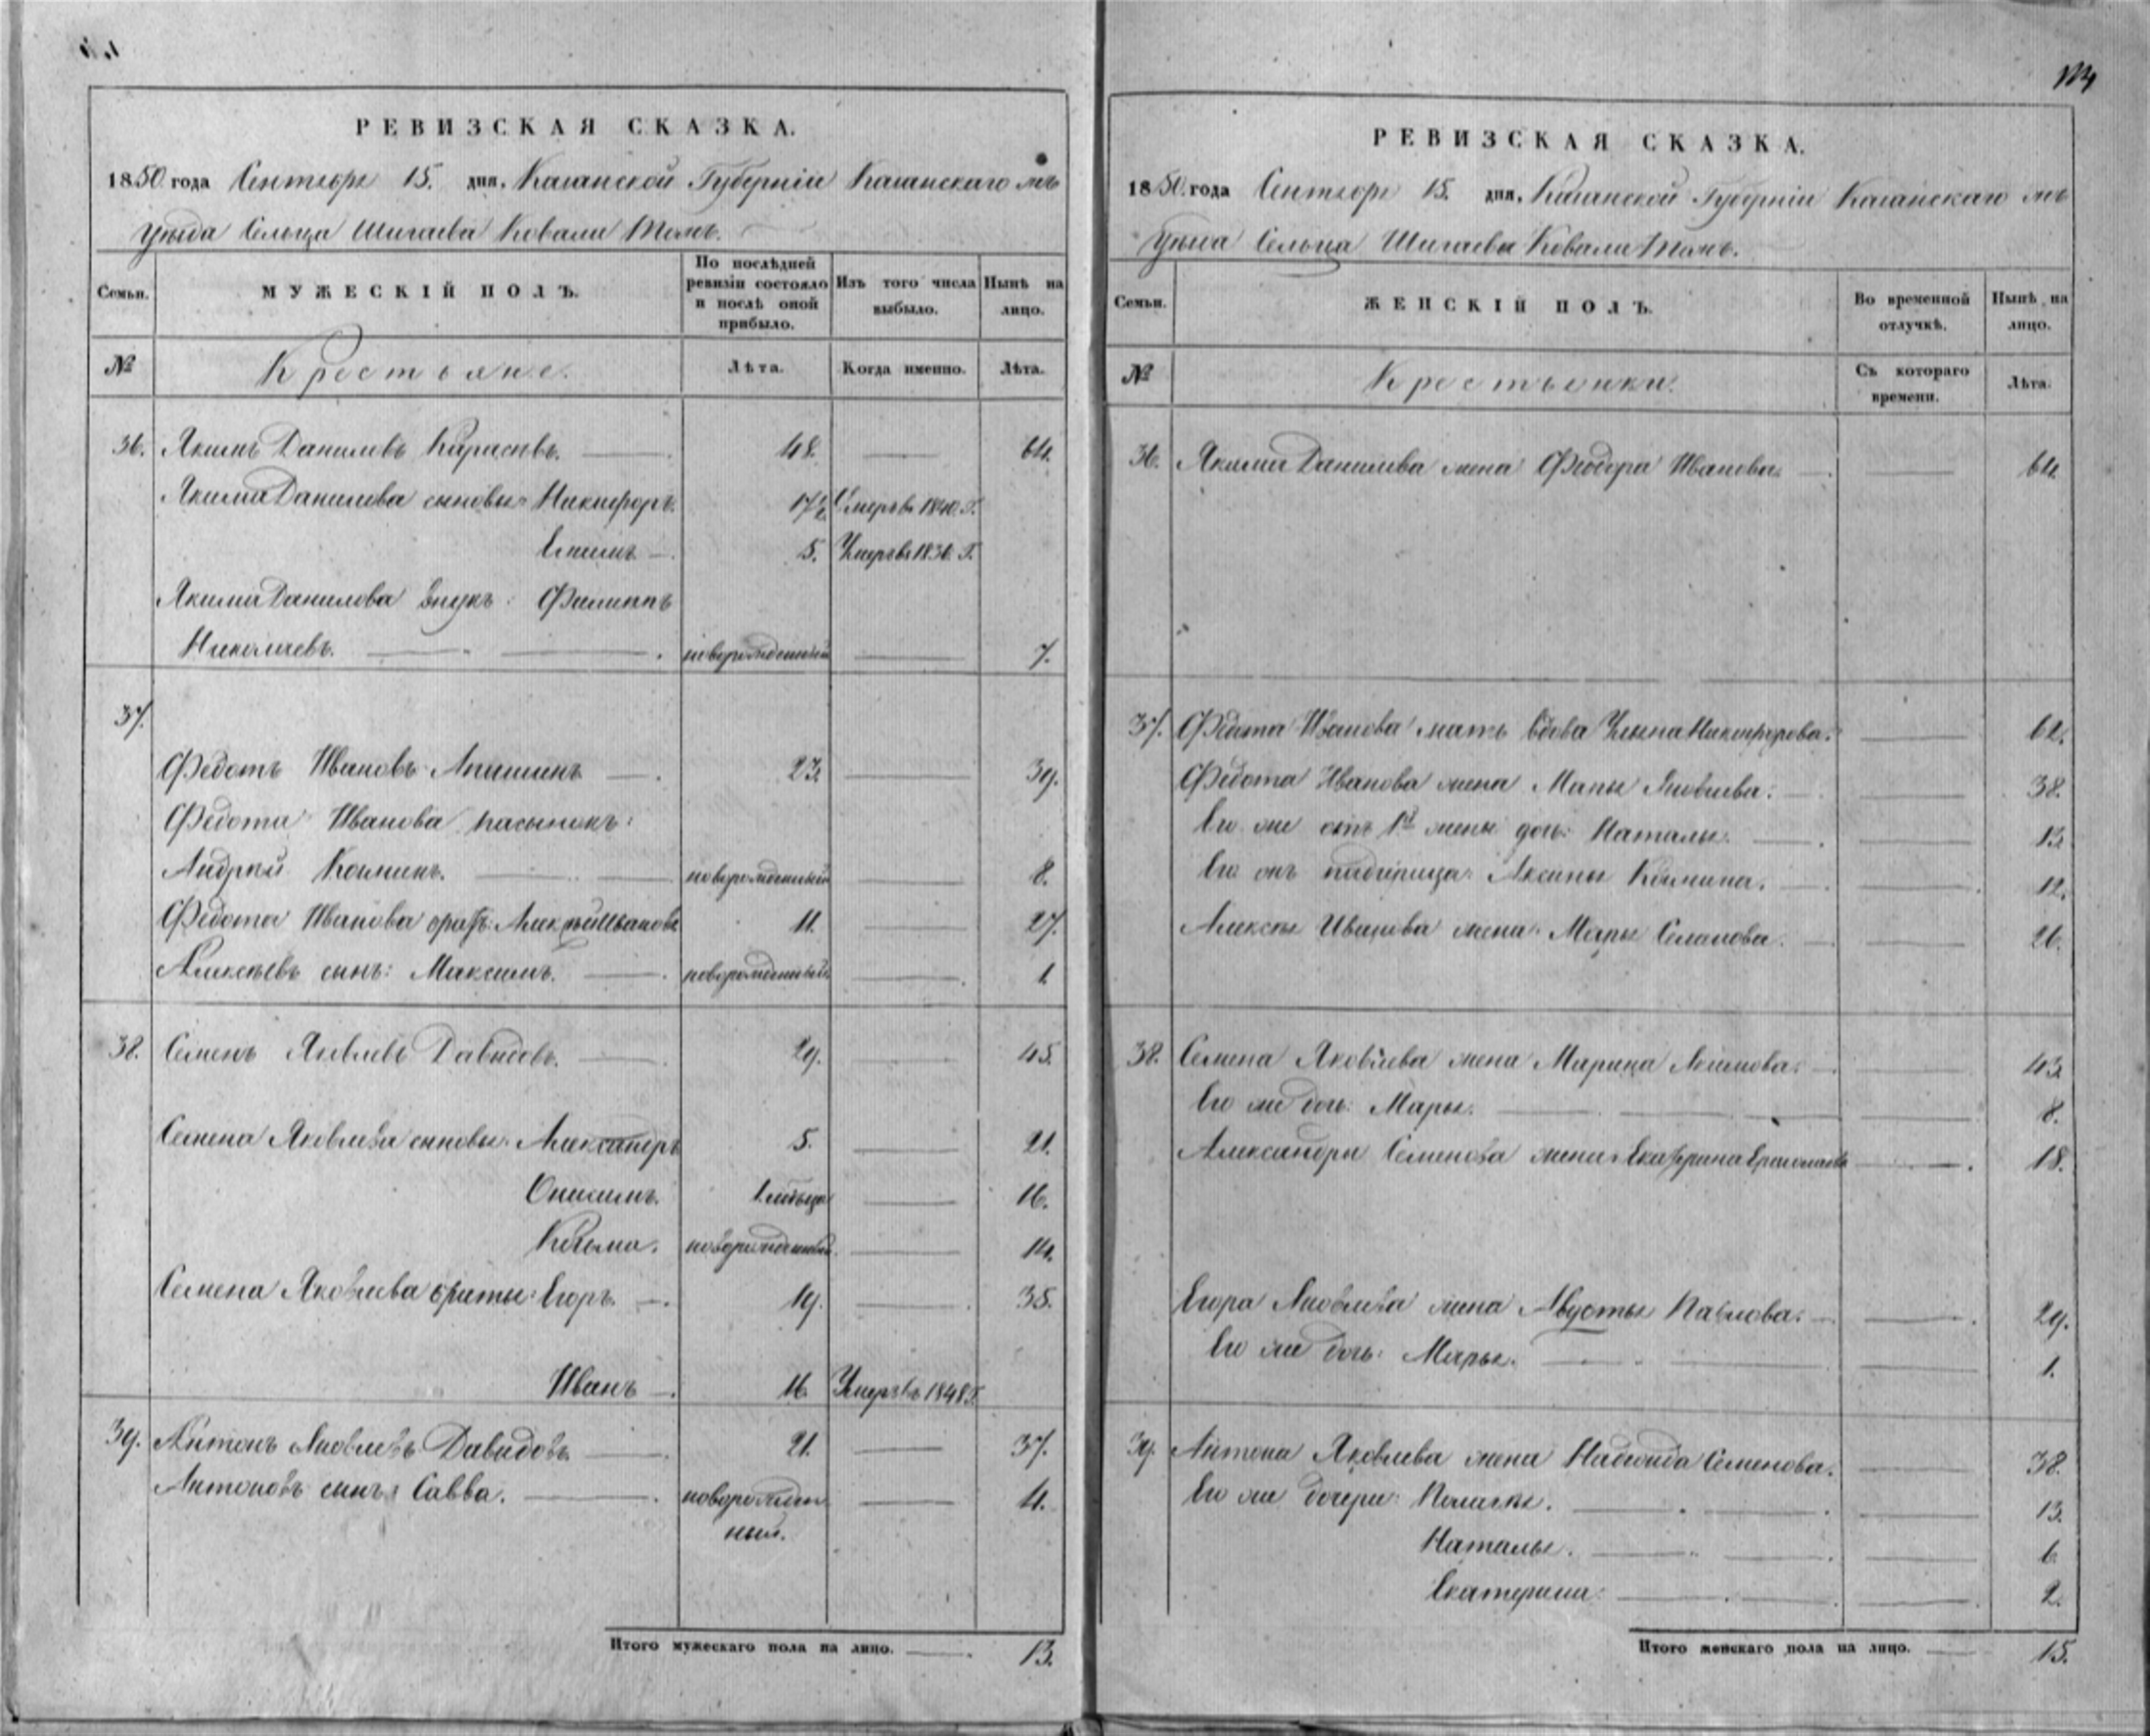 РЕВИЗСКАЯ СКАЗКА.
1850 года Сентября 15. дня. Казанской Губерніи Казанскаго
уѣзда Сельца Шигаева Ковали тожъ.
Семьи.
МУЖЕСКІЙ ПОЛЪ.
По послѣдней ревизіи состояло и послѣ оной прибыло.
Изъ того числа выбыло.
Нынѣ на лицо.
№
Крестьяне.
Лѣта.
Когда именно.
Лѣта.
36. Якимъ Даниловъ 48. 64.
Якима Данилова сыновья Никифоръ. 17½ Умеръ въ 1840. Г.
5. Умеръ въ 1836. Г.
Якима Данилова внукъ: Филиппъ
новорожденный 7.
37.
Федотъ Ивановъ 23. 39.
Федота Иванова пасынокъ:
Андрей Козминъ. новорожденный 8.
Федота Иванова братъ: Алексѣй Ивановъ 11. 27.
Алексѣевъ сынъ: Максимъ. новорожденный 1.
38. Семенъ Яковлевъ Давыдовъ. 29. 45.
Семена Яковлева сыновья: Александръ 5. 21.
Онисимъ. 16.
Козьма. новорожденный 14.
Семена Яковлева братья: Егоръ. 19. 35.
Иванъ 16. Умеръ въ 1848 Г.
39. Антонъ Яковлевъ Давыдовъ 21. 37.
Антоновъ сынъ: Савва. новорожден 4.
ный.
Итого мужескаго пола на лицо. 13.
РЕВИЗСКАЯ СКАЗКА.
1850. года Сентября 15. дня. Казанской Губерніи Казанскаго
уѣзда Сельца Шигаева Ковали тожъ.
Семьи.
ЖЕНСКІЙ ПОЛЪ.
Во временной отлучкѣ.
Нынѣ на лицо.
№
Крестьянки.
Съ котораго времени.
Лѣта.
36. Якима Данилова жена Федора Иванова. 64.
37. Федота Иванова мать вдова Ульяна Никифорова. 62.
Федота Иванова жена Яковлева. 38.
Его же отъ 1й жены дочь: Наталья. 13.
Его же падчерица: Аксинья Козмина. 12.
Алексѣя Иванова жена: Марья 26.
38. Семена Яковлева жена Марина Акимова. 43.
Его же дочь: Марья. 8.
Александра Семенова жена: Екатерина 18.
Егора Яковлева жена Авдотья Павлова. 29.
Его же дочь: Марья. 1.
39. Антона Яковлева жена Надежда Семенова. 38.
Его же дочери: Пелагея. 13.
Наталья. 6.
Екатерина. 2.
Итого женскаго пола на лицо. 15.